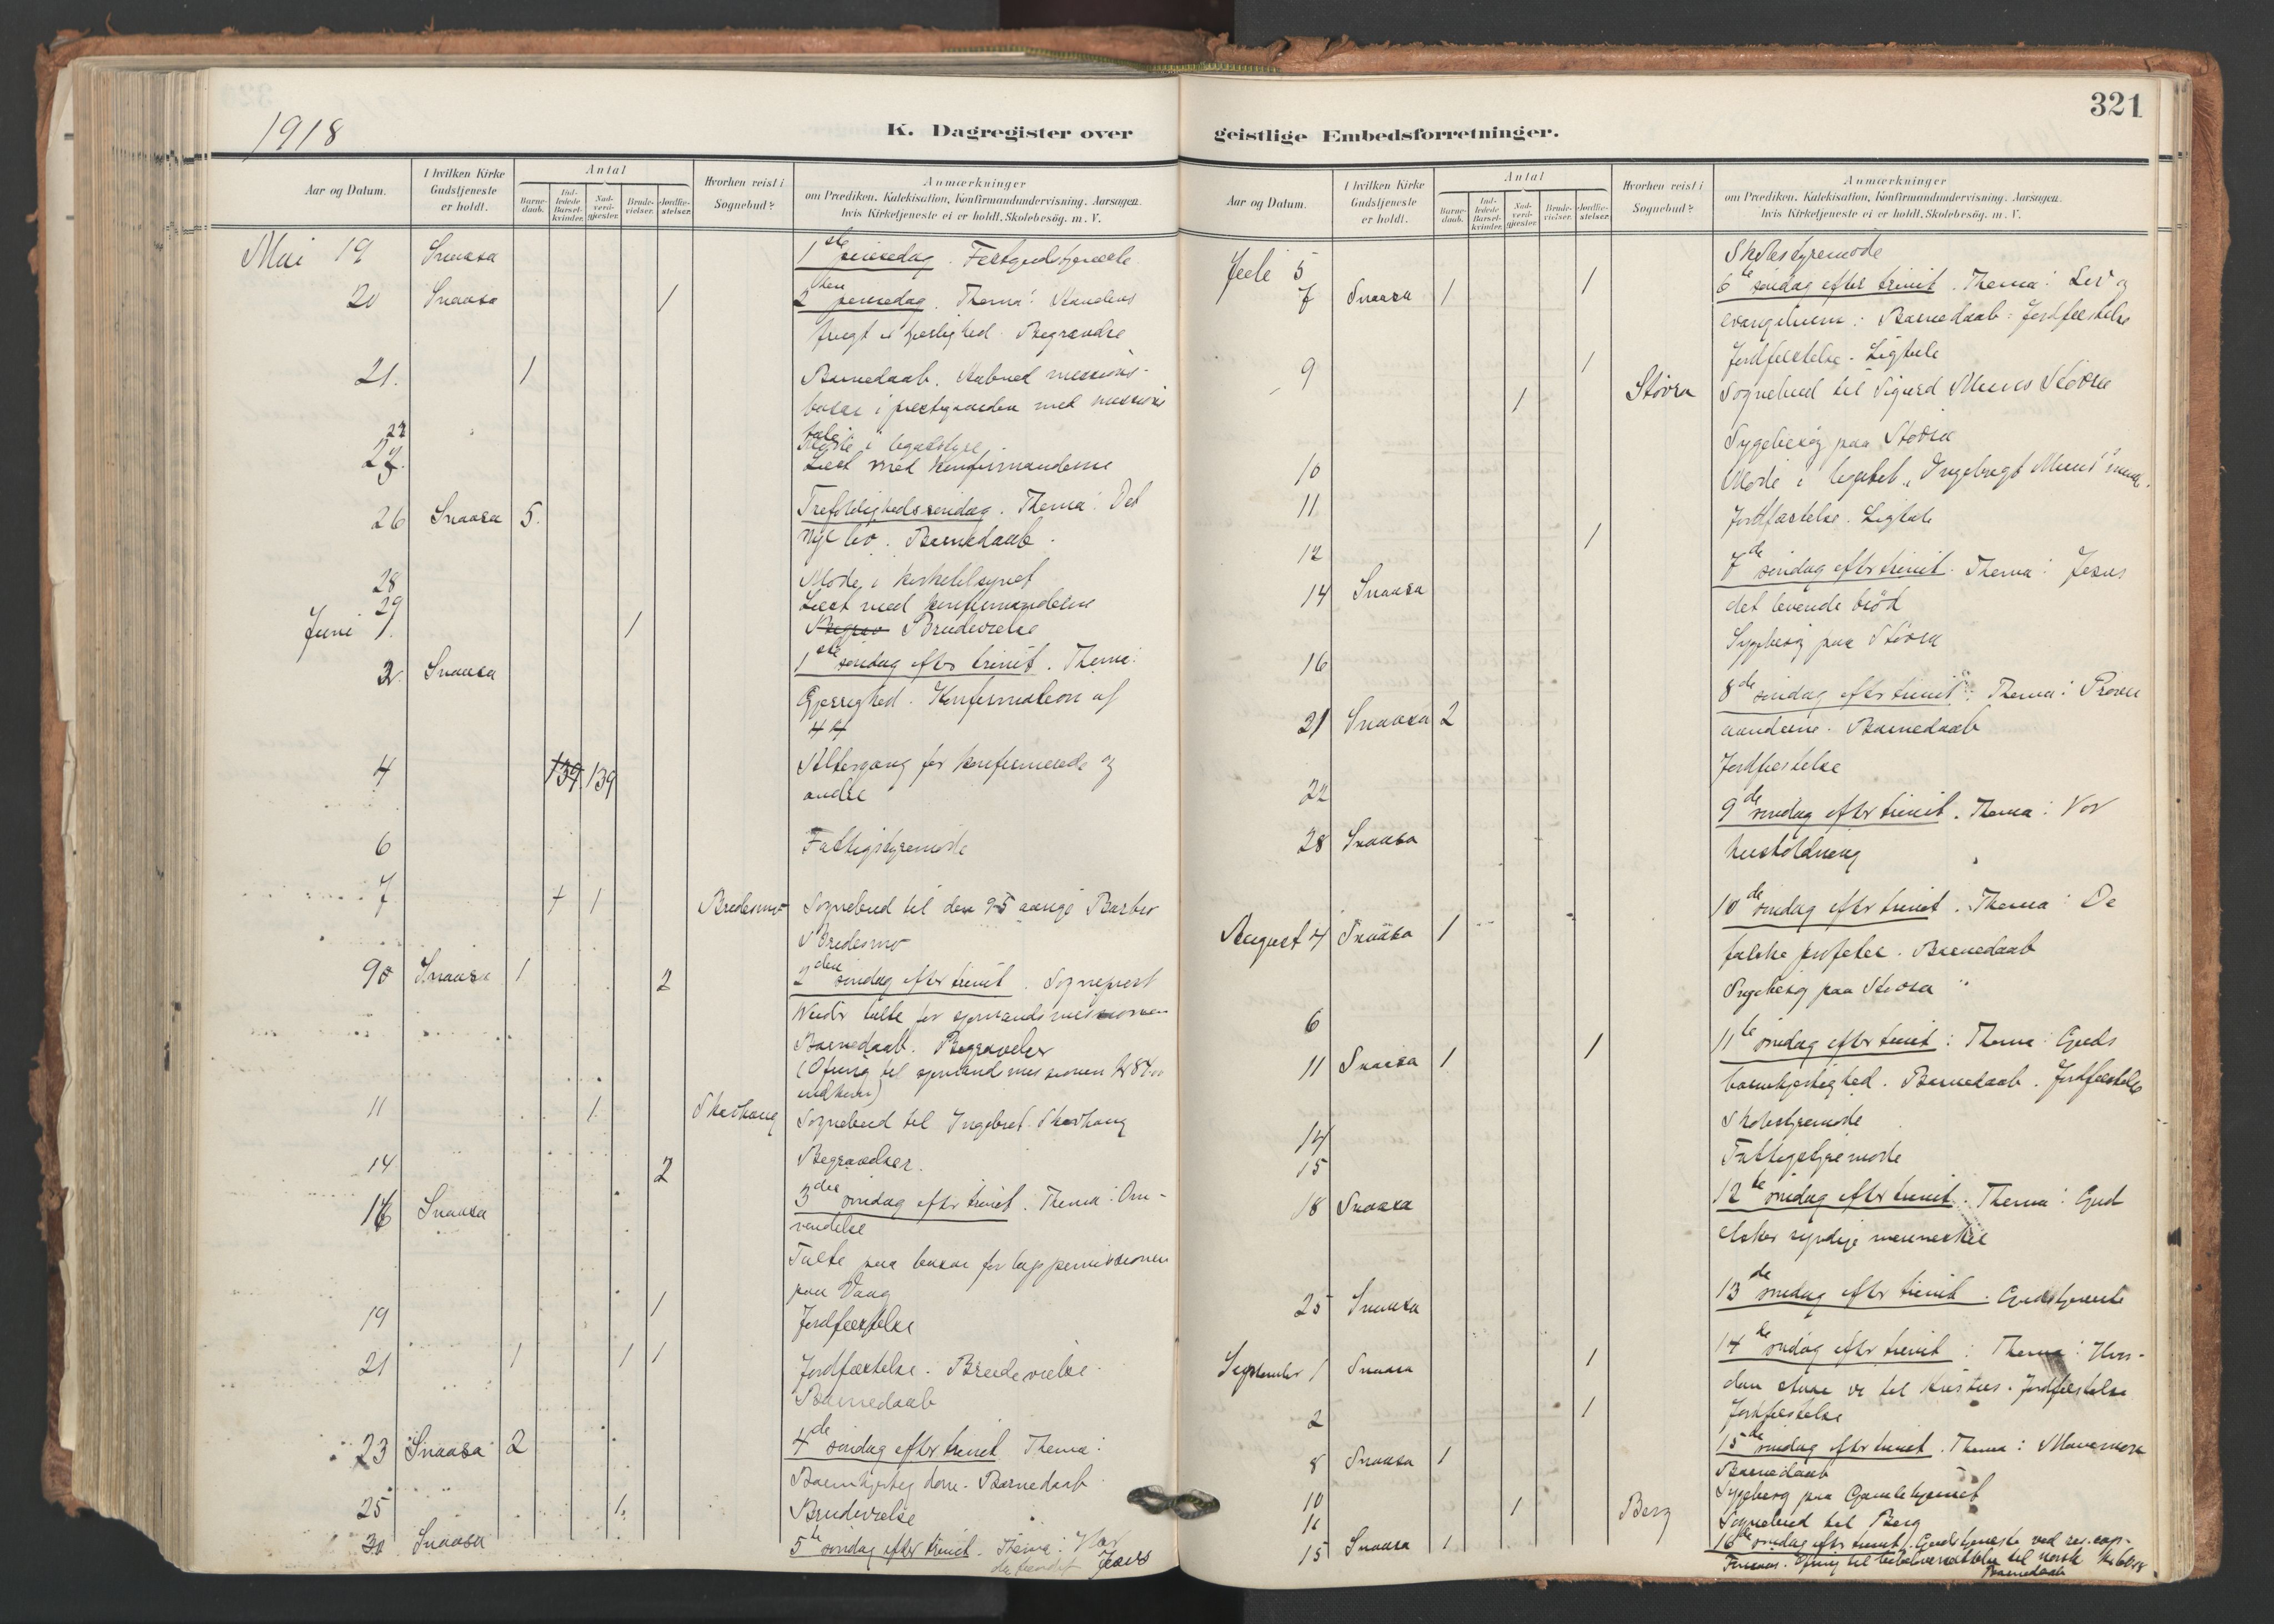 1918
K. Dagregister over
Aar og Datum.
I hvilken Kirke Gudstjeneste er holdt.
Antal
Barne-daab.
Ind-ledede Barsel-kvinder.
Nad-verd-gjester.
Brude-vielser.
Jordfæ-stelser.
Hvorhen reist i Sognebud?
Anmærkninger
om Prædiken, Katekisation, Konfirmandundervisning, Aarsagen, hvis Kirketjeneste ei er holdt, Skolebesøg, m. V.
Mai 19 Snaasa 1ste pinsedag. Festgudstjeneste
20 Snaasa 1 2den pinsedag. Thema: Aandens
frugt er kjærlighed. Begravelse
21. 1 Barnedaab. Aabned missions-
basar i prestegaarden med missions
tale
22 Møde i legatstyre
Læst med konfirmanderne
26 Snaasa 5. Trefoldighedssøndag. Thema: Det
nye liv. Barnedaab.
28 Møde i kirketilsynet
29 Læst med konfirmanderne
Juni 1. 1 Brudevielse
2. Snaasa 1ste søndag efter trinit. Thema:
Gjerrighed. Konfirmation af
44
4 139 139 Altergang for konfirmerede og
andre
6 Fattigstyremøde
7 1 Bredesmo Sognebud til den 95 aarige Barbro
Bredesmo
9 Snaasa 1 2 2den søndag efter trinit. Sogneprest
talte for sjømandsmissionen
Barnedaab. Begravelser
(Ofring til sjømandsmissionen kr 84.00
indkom)
11 1 Skarhaug Sognebud til Ingebret Skarhaug
14 2 Begravelser.
16 Snaasa 3die søndag efter trinit. Thema: Om-
vendelse
Talte paa basar for lappemissionen
paa Vaag
19 1 Jordfæstelse
21 1 1 1 Jordfæstelse. Brudevielse.
Barnedaab
23 Snaasa 2 4de søndag efter trinit. Thema:
Barmhjertig dom. Barnedaab.
25 1. Brudevielse
30 Snaasa 5te søndag efter trinit. Thema: Hvor
Jesus
321
geistlige Embedsforretninger.
Aar og Datum.
I hvilken Kirke Gudstjeneste er holdt.
Antal
Barne-daab.
Ind-ledede Barsel-kvinder.
Nad-verd-gjester.
Brude-vielser.
Jordfæ-stelser.
Hvorhen reist i Sognebud?
Anmærkninger
om Prædiken, Katekisation, Konfirmandundervisning, Aarsagen, hvis Kirketjeneste ei er holdt, Skolebesøg, m. V.
Juli 5 Skolestyremøde
7 Snaasa 1 1 6te søndag efter trinit. Thema: Lov og
evangelium. Barnedaab. Jordfæstelse
9 1 Jordfæstelse. Ligtale
1 Støvra Sognebud til Sigurd Muus Støvra
10 Sygebesøg paa Støvra
11 Møde i legatet "Ingebrigt Muus' minde"
12 1 Jordfæstelse. Ligtale
14 Snaasa 7de søndag efter trinit. Thema: Jesus
det levende brød
16 Sygebesøg paa Støvra
21 Snaasa 2 8de søndag efter trinit. Thema: Prøver
aanderne. Barnedaab
22 Jordfæstelse
28 Snaasa 9de søndag efter trinit. Thema: Vor
husholdning
August 4 Snaasa 1 10de søndag efter trinit. Thema: De
falske profeter. Barnedaab
6 Sygebesøg paa Støvra
11 Snaasa 1 1 11te søndag efter trinit: Thema: Guds
barmhjertighed. Barnedaab. Jordfæstelse
14 Skolestyremøde
15 Fattigstyremøde
18 Snaasa 12te søndag efter trinit. Thema: Gud
elsker syndige mennesker
25 Snaasa 13de søndag efter trinit. Gudstjeneste
September 1 Snaasa 1 14de søndag efter trinit: Thema: Hvor-
dan staar vi til Kristus. Jordfæstelse
2 1 Jordfæstelse
8 Snaasa 1 15de søndag efter trinit. Thema:
Barnedaab
10 Sygebesøg paa
11 1 Berg Sognebud til Berg
15 Snaasa 1 16de søndag efter trinit. Gudstjeneste ved res. cap.
Ofring til bibeloversættelse til norsk
Barnedaab